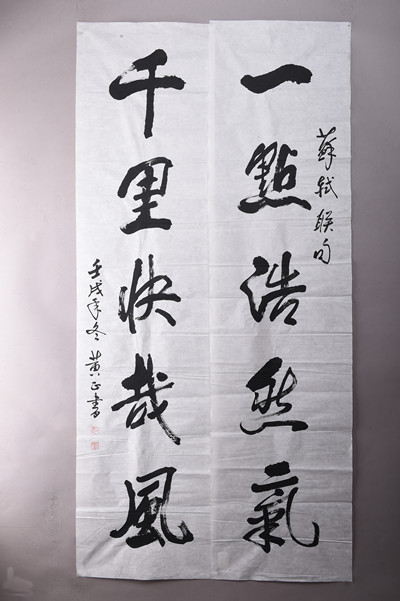 一點浩然氣
蘇軾聯句
千里快哉風
壬戌年冬 黃正書